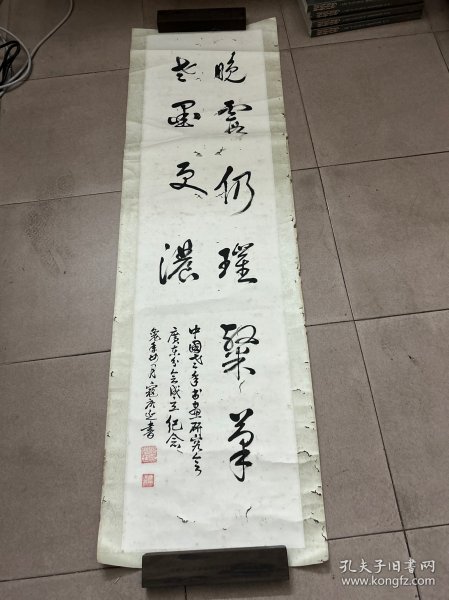 晚霞仍璀粲笔
老墨更浓
中國老年书画研究会
廣东分会成立纪念
寇庆延书
孔夫子旧书网
www.kongfz.com